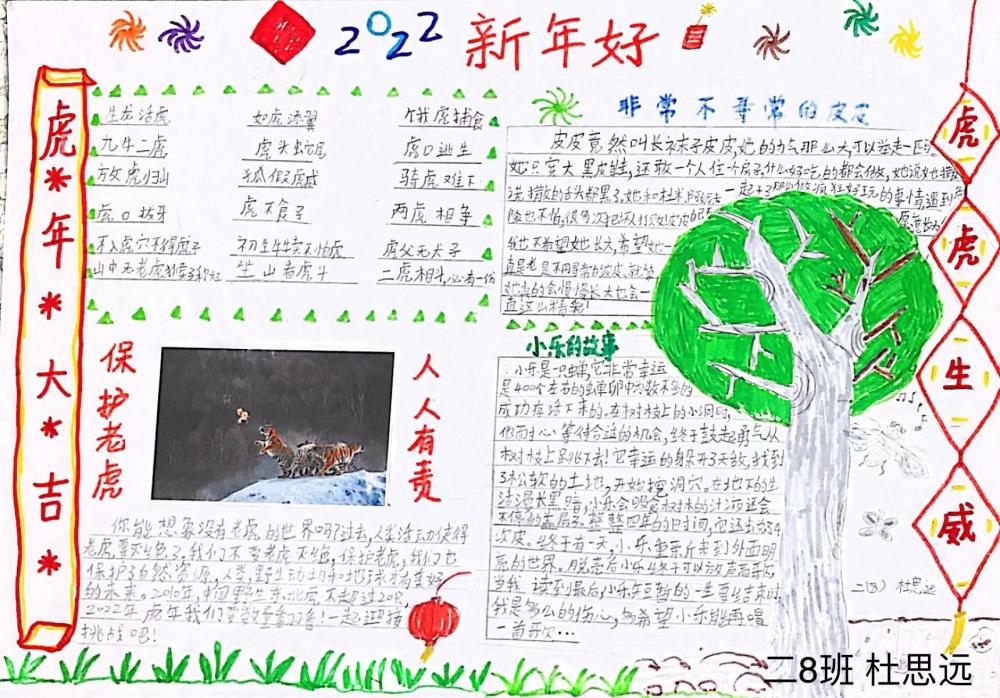 2022 新年好
虎年大吉
生龙活虎 如虎添翼 饿虎捕食
九牛二虎 虎头蛇尾 虎口逃生
放虎归山 狐假虎威 骑虎难下
虎口拔牙 虎不食子 两虎相争
不入虎穴不得虎子 初生牛犊不怕虎 虎父无犬子
山中无老虎 坐山看虎斗 二虎相斗,必有一伤
保护老虎
人人有责
你能想象没有老虎的世界吗?过去,人类活动使得
老虎 我们不要老虎灭绝,保护老虎,我们也
保护了自然资源,人类,野生动物和地球构美好
的未来。2010年,中国野生东北虎不超过20只,
2022年虎年我们要数量翻番!一起迎接
挑战吧!
非常不寻常的皮皮
皮皮竟然叫长袜子皮皮,她的力气那么大,可以举起一匹
她只穿大黑皮鞋,还敢一个人住 什么好吃的都会做,她说
她和杜米阿尼卡一起 好玩的事情,遇到
险也不怕,很多次
我也不希望她长大,希望她一
真是老是不同寻常的皮皮,我
她真的会慢慢长大也会一
直这么精彩!
小乐的故事
小乐是一只蝉,它非常幸运
是400个左右的蝉卵中为数不多的
成功存活下来的。在树枝上的小洞
他耐心等待合适的机会,终于鼓起勇气从
树枝上跳下去!它幸运的躲开了天敌,找到
了松软的土地,开始挖洞穴。在地下的生
活漫长黑暗,小乐会吸食树木的汁液还会
不停的 整整四年的时间,它还
次皮。终于有一天,小乐重新来到外面明
亮的世界。脱壳后小乐终于可以放声高歌,
当我读到最后,小乐短暂的一生要结束时
我是多么的伤心,多希望小乐能再唱
一首歌…
虎虎生威
二(8) 杜思远
二8班 杜思远